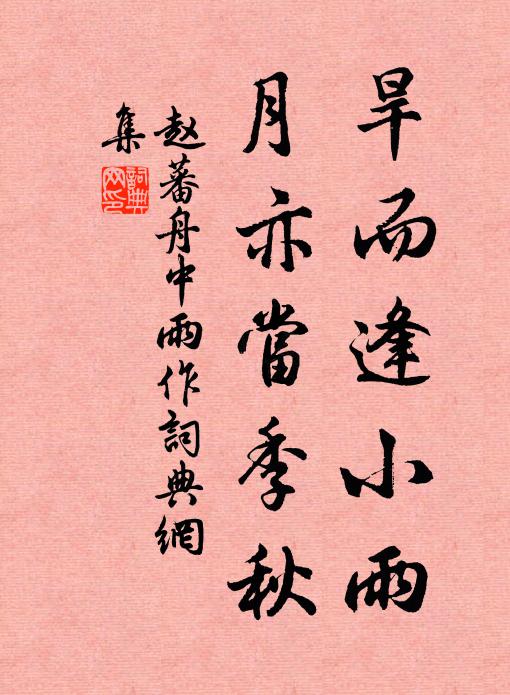 旱而逢小雨
月亦當季秋
赵蕃舟中雨作詞典網
集
詞典
网印